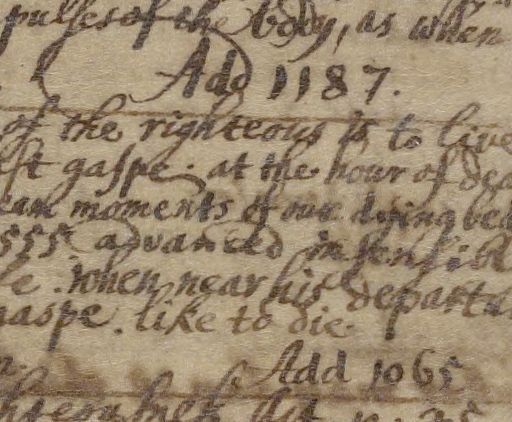 pulses of the body, as when
Add 1187.
of the righteous is to live
gaspe. at the hour of dea
moments of our dying bed
555. advanced insensibl
when near his departu
gaspe. like to die.
Add 1065